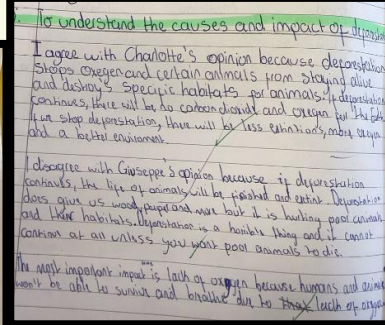 To understand the causes and impact of deforesta
I agree with Charlotte's opinion because deforestation
stops oxegen and certain animals from staying alive
and destroys specific habitats for animals. If deforestation
continues, there will be no carbon dioxide and oxegen for the
If we stop deforestation, there will be less extinctions, more oxegen
and a better enviroment.
I disagree with Giuseppe's opinion because if deforestation
continues, the life of animals will be finished and extint. Deforestation
does give us wood, paper and more but it is hurting poor animals
and their habitats. Deforestation is a horible thing and it cannot
continue at all unless you want poor animals to die.
The most important impact is lack of oxygen because humans and animals
won't be able to survive and breathe due to that lack of oxygen